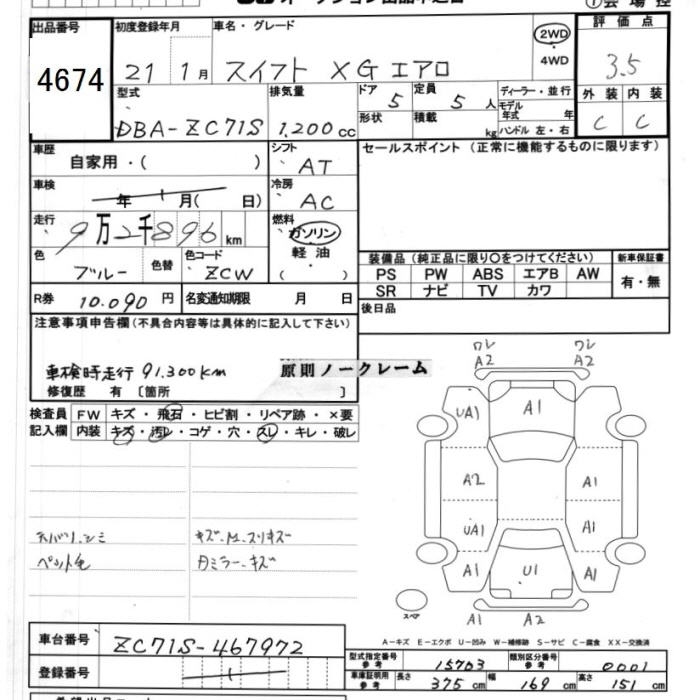 出品番号 初度登録年月 車名・グレード 2WD 4WD 評価点
4674 21 1月 スイフト XG エアロ 3.5
型式 排気量 ドア 5 定員 5人 ディーラー・並行 外装 内装
DBA-ZC71S 1,200cc 形状 積載 kg モデル年式 年 ハンドル 左・右 C C
車歴 シフト セールスポイント (正常に機能するものに限ります)
自家用・( ) AT
車検 冷房
年 月( 日) AC
走行 燃料
9万2千896km ガソリン
色 色替 色コード 軽油 装備品 (純正品に限り○をつけてください) 新車保証書
ブルー ZCW ( ) PS PW ABS エアB AW 有・無
R券 10.090円 名変通知期限 月 日 SR ナビ TV カワ
注意事項申告欄 (不具合内容等は具体的に記入して下さい) 後日品
車検時走行 91.300km 原則ノークレーム
修復歴 有 〔箇所 〕
検査員 FW キズ・飛石・ヒビ割・リペア跡・×要
記入欄 内装 キズ・汚レ・コゲ・穴・スレ・キレ・破レ
ワレ ワレ
A2 A2
UA1 A1
A2 A1
UA1 A1
A1 U1 A1
スペア A1 A2
キズ・
ミラー・キズ
A-キズ E-エクボ U-凹み W-補修跡 S-サビ C-腐食 XX-交換済
車台番号 ZC71S-467972
型式指定番号 参考 15703 類別区分番号 参考 0001
登録番号
車庫証明用 参考 長さ 375cm 幅 169cm 高さ 151cm